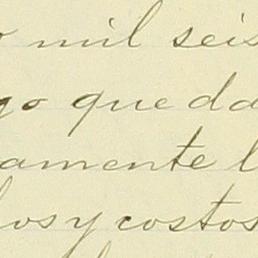 mil seis
go queda
amente l
os y costos